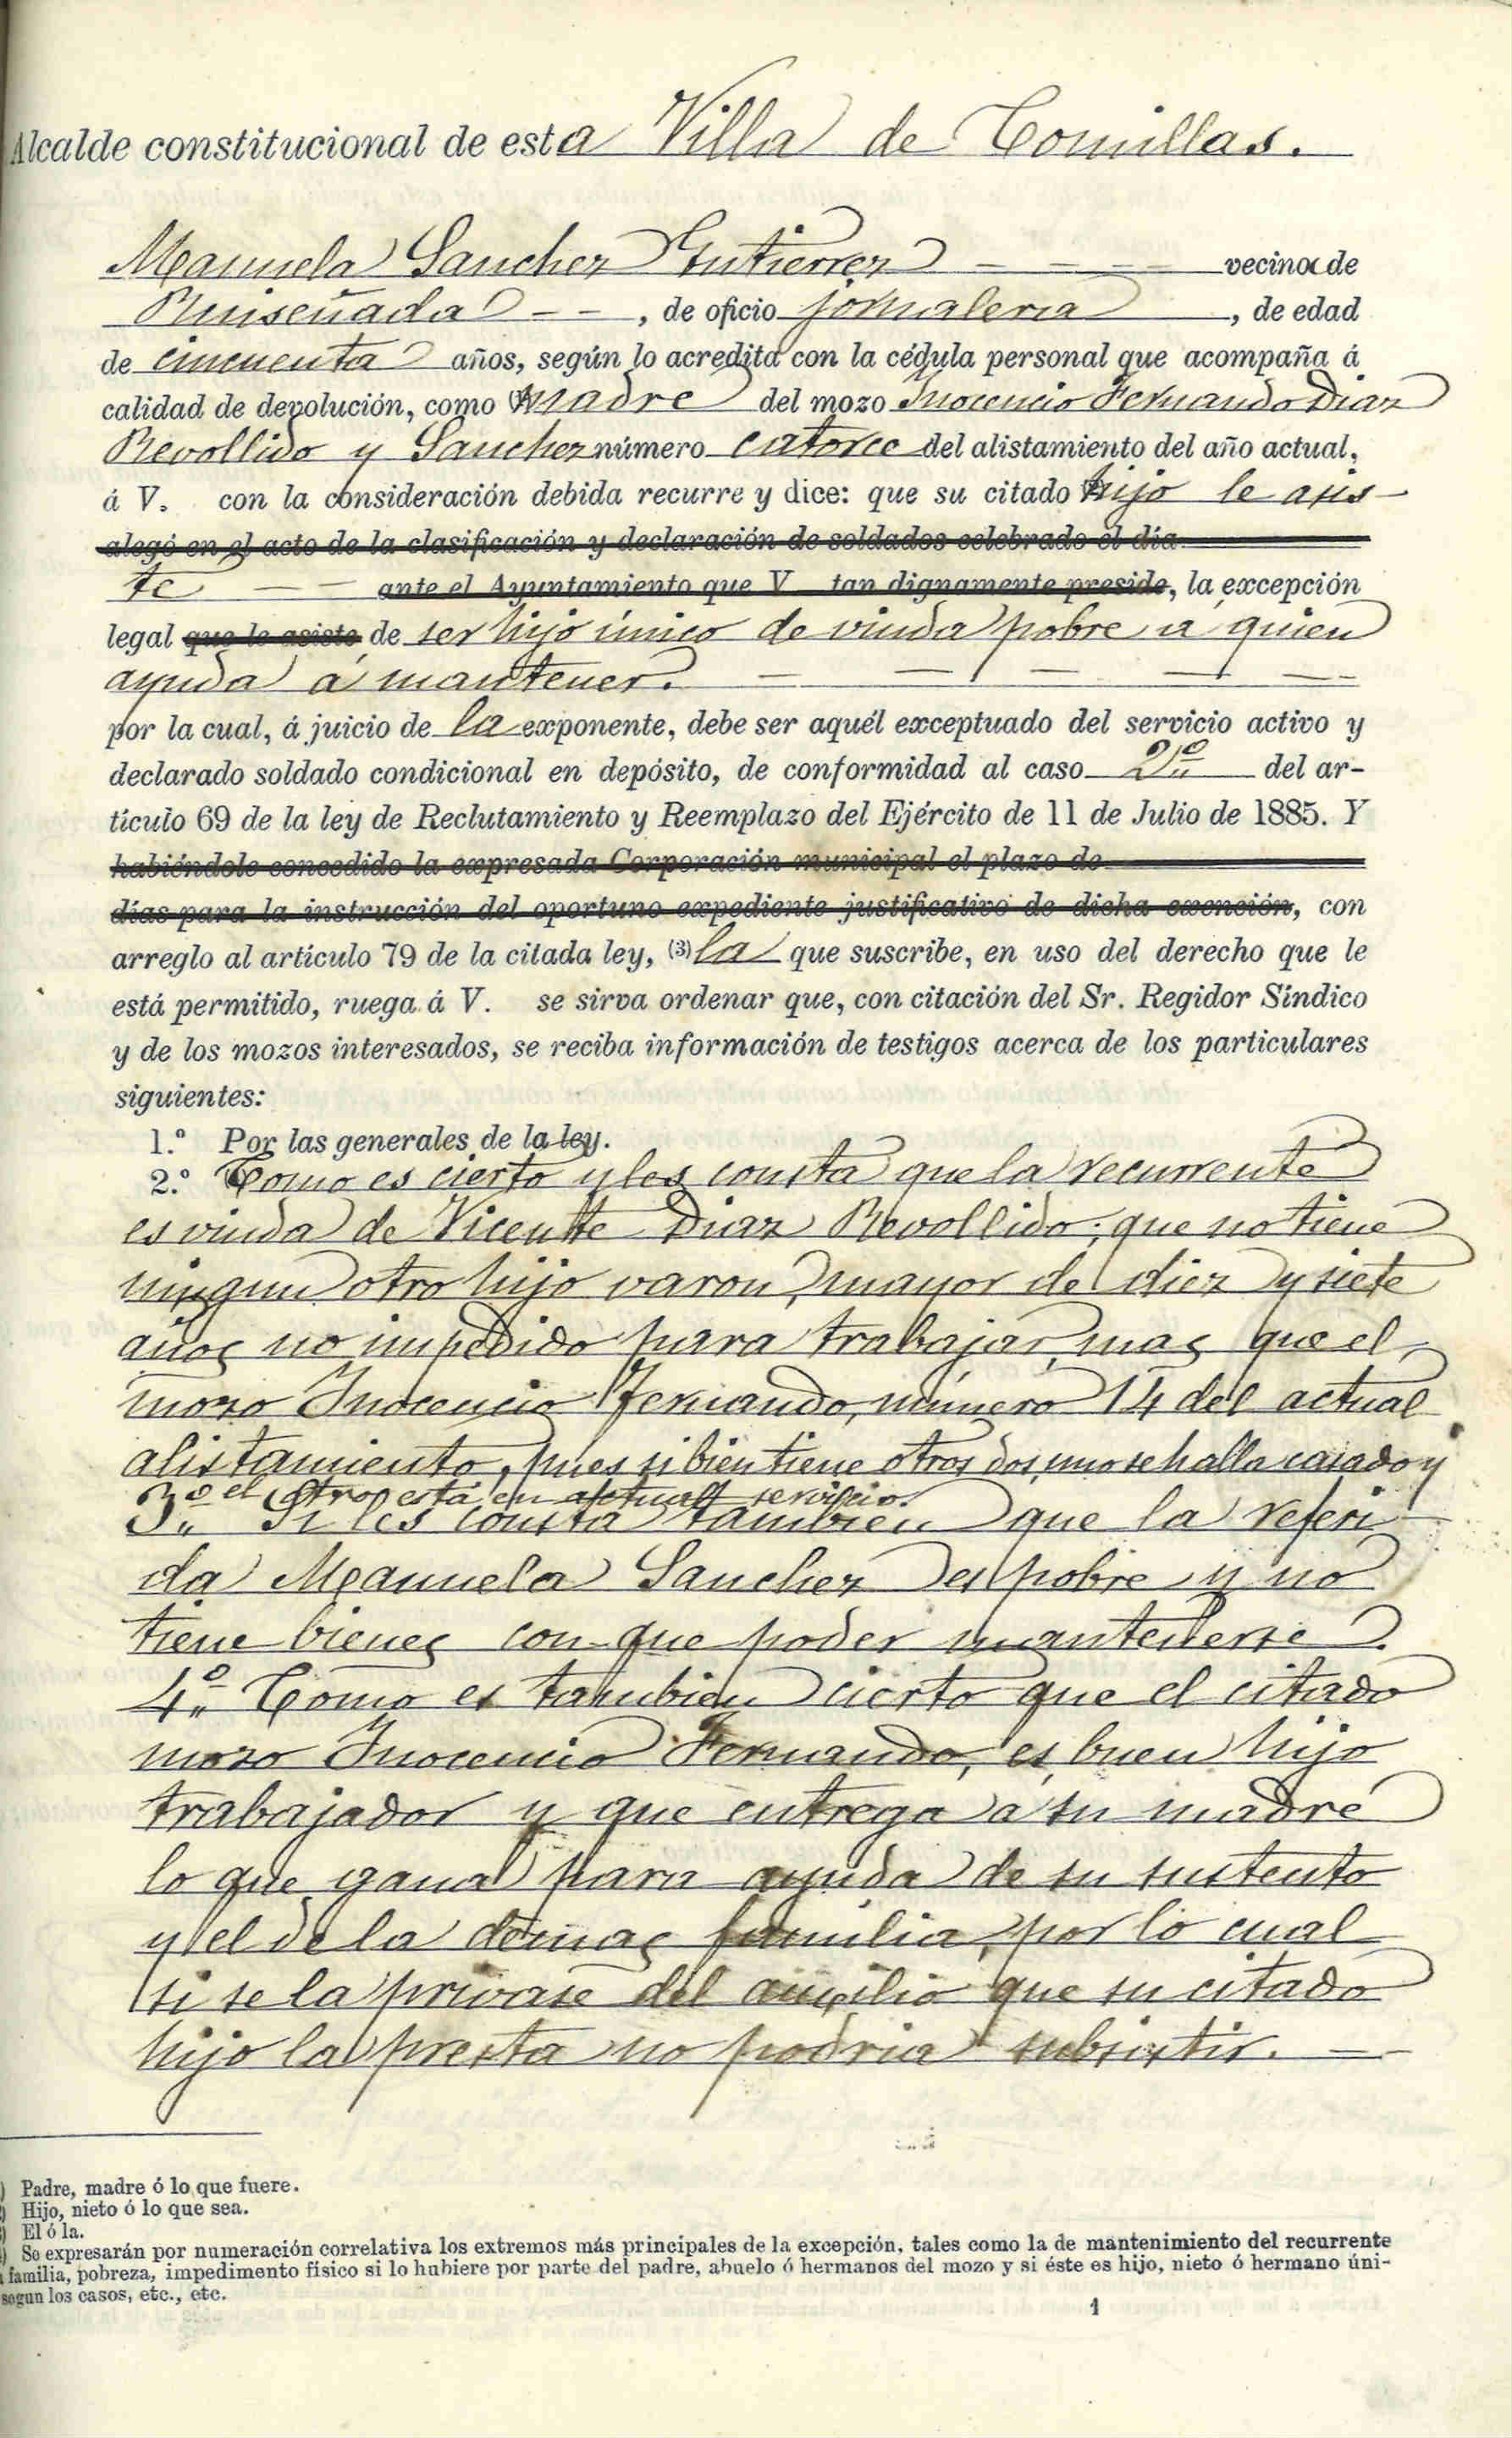 Alcalde constitucional de esta Villa de Comillas.
Manuela Sanchez Gutierrez vecina de
Ruiseñada, de oficio jornalera, de edad
de cincuenta años, según lo acredita con la cédula personal que acompaña á
calidad de devolución, como madre del mozo Inocencio Fernando Diaz
Revollido y Sanchez número catorce del alistamiento del año actual,
á V. con la consideración debida recurre y dice: que su citado hijo le asis-
alegó en el acto de la clasificación y declaración de soldados celebrado el día
te ante el Ayuntamiento que V tan dignamente preside, la excepción
legal que le asiste de ser hijo único de viuda pobre á quien
ayuda á mantener.
por la cual, á juicio de la exponente, debe ser aquél exceptuado del servicio activo y
declarado soldado condicional en depósito, de conformidad al caso 2º del ar-
tículo 69 de la ley de Reclutamiento y Reemplazo del Ejército de 11 de Julio de 1885. Y
habiéndole concedido la expresada Corporación municipal el plazo de
días para la instrucción del oportuno expediente justificativo de dicha exención, con
arreglo al artículo 79 de la citada ley, (3) la que suscribe, en uso del derecho que le
está permitido, ruega á V. se sirva ordenar que, con citación del Sr. Regidor Síndico
y de los mozos interesados, se reciba información de testigos acerca de los particulares
siguientes:
1.º Por las generales de la ley.
2.º Como es cierto y les consta que la recurrente
es viuda de Vicente Diaz Revollido; que no tiene
ningun otro hijo varon, mayor de diez y siete
años no impedido para trabajar, mas que el
mozo Inocencio Fernando, número 14 del actual
alistamiento, pues si bien tiene otros dos, uno se halla casado y
el otro está en actual servicio.
3º Si les consta tambien que la referi-
da Manuela Sanchez es pobre y no
tiene bienes con que poder mantenerse.
4º Como es tambien cierto que el citado
mozo Inocencio Fernando, es buen hijo
trabajador y que entrega á su madre
lo que gana para ayuda de su sustento
y el de la demas familia, por lo cual
si se la privase del auxilio que su citado
hijo la presta no podria subsistir.
) Padre, madre ó lo que fuere.
) Hijo, nieto ó lo que sea.
) El ó la.
) Se expresarán por numeración correlativa los extremos más principales de la excepción, tales como la de mantenimiento del recurrente
familia, pobreza, impedimento físico si lo hubiere por parte del padre, abuelo ó hermanos del mozo y si éste es hijo, nieto ó hermano úni-
segun los casos, etc., etc.
1